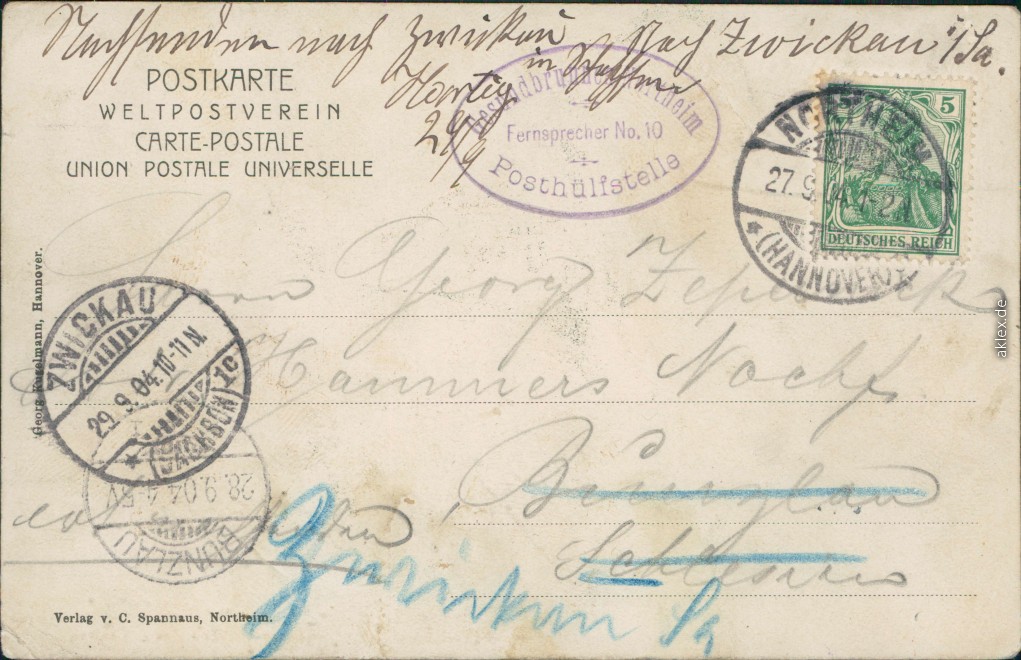 Nachsenden nach Zwickau Nach Zwickau i/Sa.
in Sachsen
Hartig
29/9
POSTKARTE
WELTPOSTVEREIN
CARTE-POSTALE
UNION POSTALE UNIVERSELLE
Gesundbrunnen Northeim
Fernsprecher No. 10
Posthülfstelle
5 5
DEUTSCHES REICH
NORTHEIM
27.9.04.1-2N
* (HANNOVER) *
Herrn Georg
Hammers Nachf
Bunzlau
Schlesien
Zwickau Sa
ZWICKAU
29.9.04.10-11N.
* (SACHSEN) 1c
28.9.04.4-5V
BUNZLAU
Georg Kugelmann, Hannover.
Verlag v. C. Spannaus, Northeim.
aklex.de